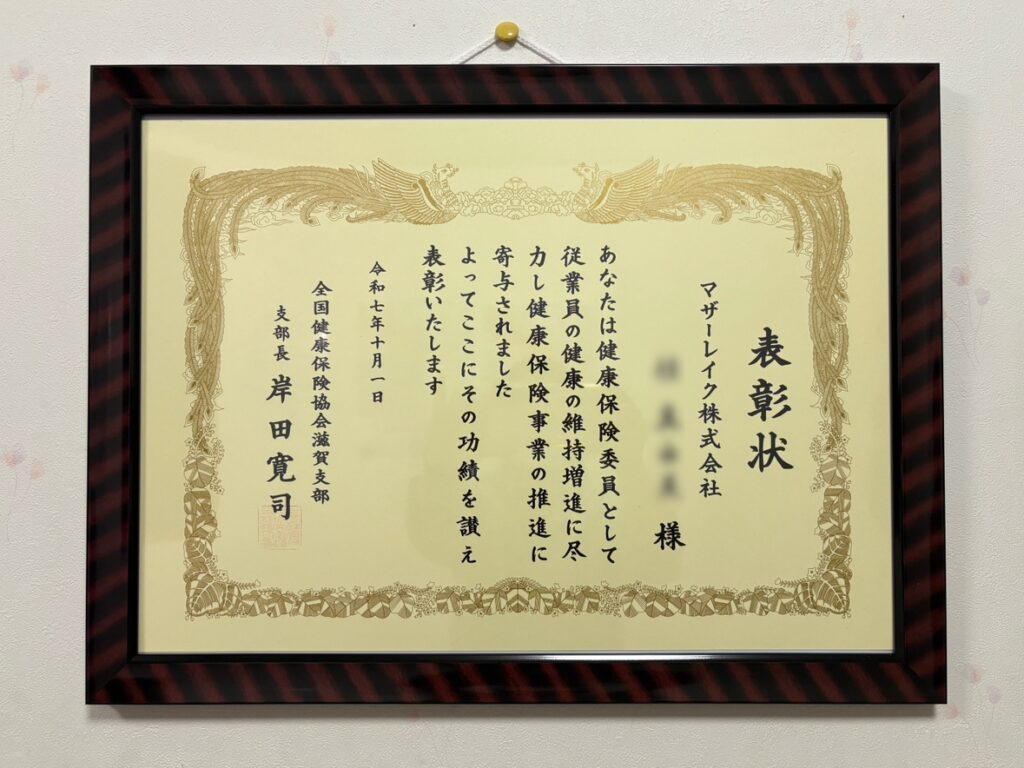 表彰状
マザーレイク株式会社
様
あなたは健康保険委員として
従業員の健康の維持増進に尽
力し健康保険事業の推進に
寄与されました
よってここにその功績を讃え
表彰いたします
令和七年十月一日
全国健康保険協会滋賀支部
支部長 岸田寛司